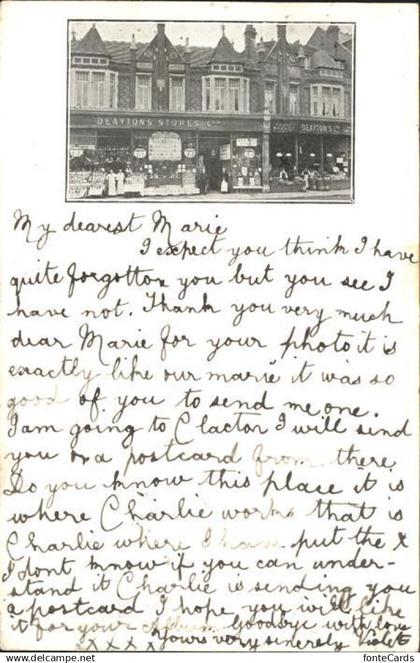 DEAYTONS STORES LTD
DEAYTON'S LTD
My dearest Marie
I expect you think I have
quite forgotton you but you see I
have not. Thank you very much
dear Marie for your photo it is
exactly like our marie it was so
good of you to send me one.
I am going to Clactor I will send
you a postcard from there.
Do you know this place it is
where Charlie works that is
Charlie where I have put the x
I dont know if you can under-
stand it Charlie is sending you
a postcard I hope you will like
it for your Album Goodbye with love
xxxx Yours very sincerely Violet
© fonteCards